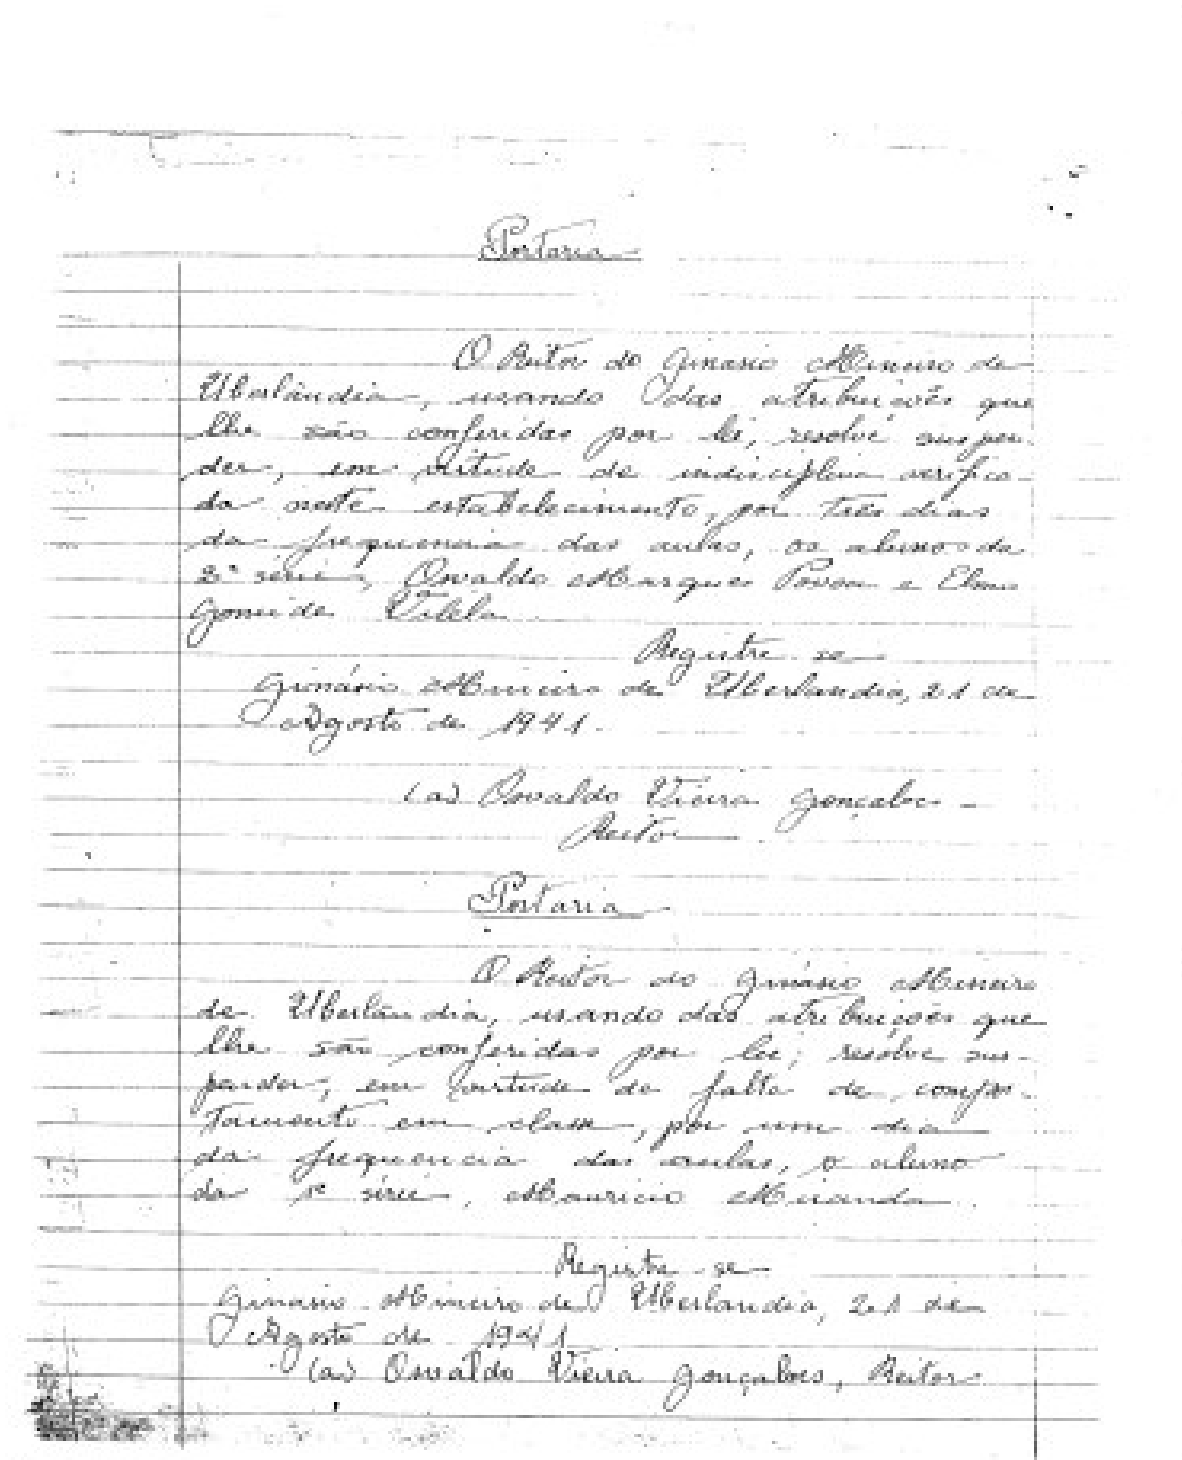 Portaria
O Reitor do Ginasio Mineiro de
Uberlândia, usando das atribuições que
lhe são conferidas por lei, resolve suspen-
der, em virtude de indisciplina verifica-
da neste estabelecimento, por três dias
da frequencia das aulas, os alunos da
2ª série, Osvaldo Marques Povoa e
Gomide Vilela
Registre-se
Ginásio Mineiro de Uberlandia, 21 de
Agosto de 1941.
(a) Osvaldo Vieira Gonçalves
Reitor
Portaria
O Reitor do Ginásio Mineiro
de Uberlândia, usando das atribuições que
lhe são conferidas por lei, resolve sus-
pender, em virtude de falta de compor-
tamento em classe, por um dia
da frequencia das aulas, o aluno
da 1ª série, Mauricio Miranda.
Registre-se
Ginasio Mineiro de Uberlandia, 21 de
Agosto de 1941
(a) Osvaldo Vieira Gonçalves, Reitor